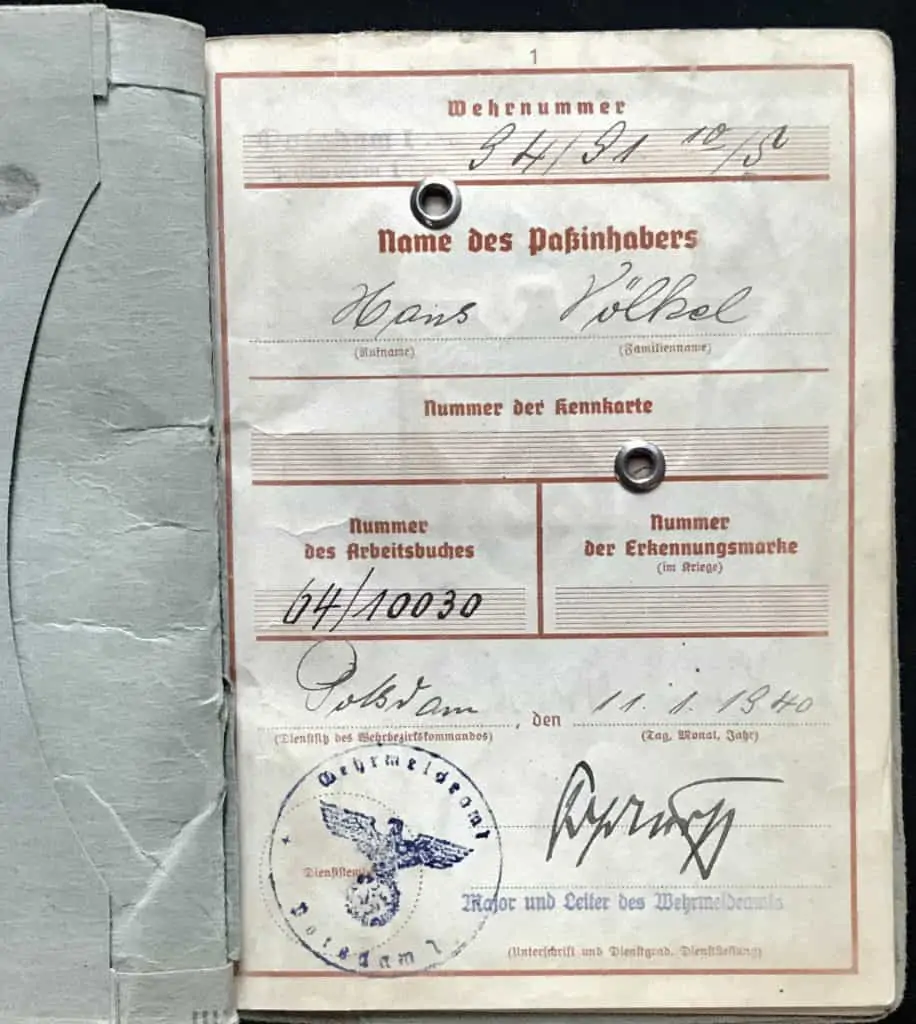 1
Wehrnummer
Name des Paßinhabers
Hans Völkel
(Rufname) (Familienname)
Nummer der Kennkarte
Nummer
des Arbeitsbuches
64/10030
Nummer
der Erkennungsmarke
(im Kriege)
Potsdam, den 11.1.1940
(Dienstsitz des Wehrbezirkskommandos) (Tag, Monat, Jahr)
Wehrmeldeamt
Dienststempel
Potsdam 1
Major und Leiter des Wehrmeldeamts
(Unterschrift und Dienstgrad, Dienststellung)